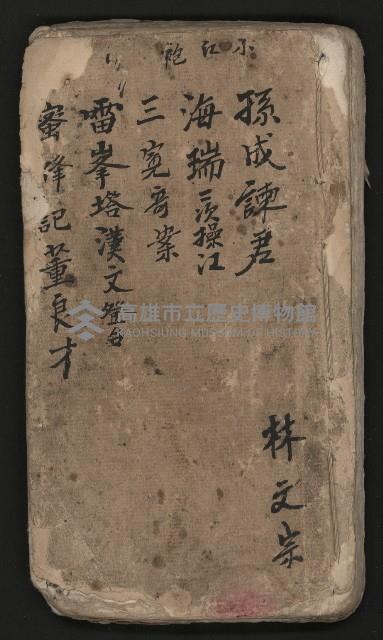 小紅袍
孫成諫君
海瑞三次操江
三寃奇案
雷峯塔漢文
蜜蜂記董良才
林文宗
高雄市立歷史博物館
KAOHSIUNG MUSEUM OF HISTORY